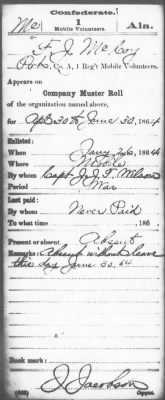 Confederate.
Mc 1 Ala.
Mobile Volunteers.
J. McCoy
Pvt., Co. A, 1 Reg't Mobile Volunteers.
Appears on
Company Muster Roll
of the organization named above,
for Apr 30 to June 30, 1864
Enlisted:
When Jany 26, 1864
Where Mobile
By whom Capt J. F. Wilson
Period War
Last paid:
By whom Never Paid
To what time 186
Present or absent Absent
Remarks: Absent without leave
this day June 30, 64
Book mark:
J. Jacobson
Copyist.